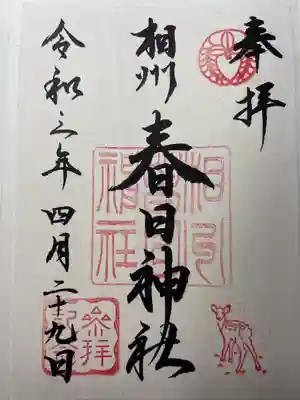 奉拝
相州
春日神社
令和三年四月二十九日
参拝